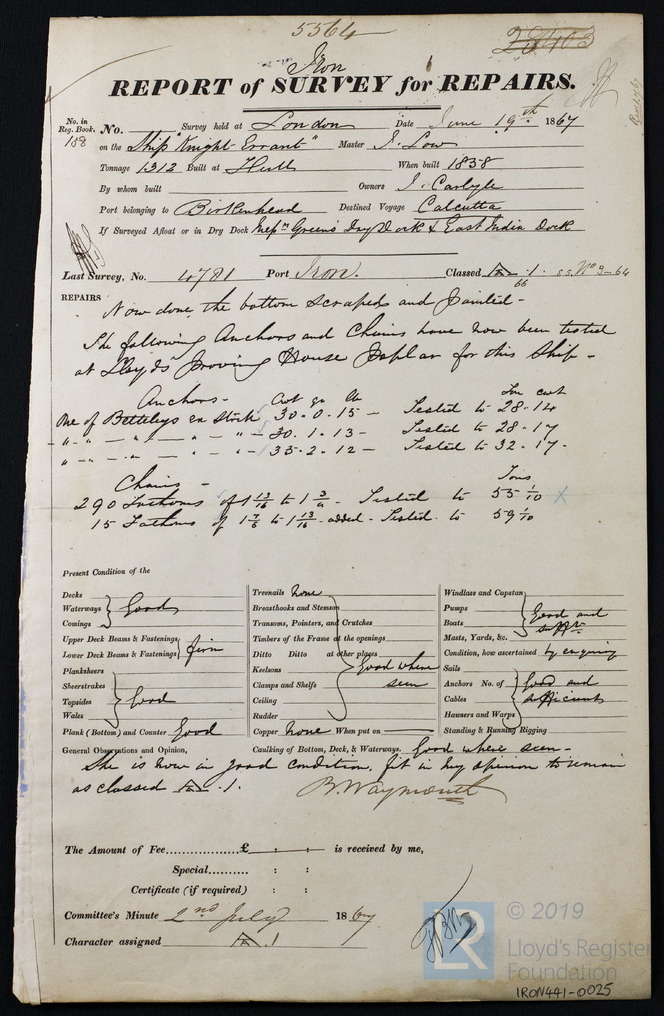 5564
23403
Iron
REPORT of SURVEY for REPAIRS.
No. in Reg. Book. 188 No. Survey held at London Date June 19th 1867
on the Ship "Knight Errant" Master J. Low
Tonnage 1312 Built at Hull When built 1858
By whom built Owners J. Carlyle
Port belonging to Birkenhead Destined Voyage Calcutta
If Surveyed Afloat or in Dry Dock Green's Dry Dock & East India Dock
Last Survey, No. 4781 Port Iron. Classed A 1. ss. No 3-64
66
REPAIRS
Now done, the bottom scraped and painted -
The following Anchors and Chains have now been tested
at Lloyds Proving House Poplar for this Ship -
Anchors - Cwt qr lb Ton cwt
One of Betteleys ex Stock 30.0.15 - Tested to 28.14
" " - " " " " - 30.1.13 - Tested to 28.17
" " - " " " " - 35.2.12 - Tested to 32.17 -
Chains - Tons
290 Fathoms of 1 13/16 to 1 3/4 - Tested to 55 1/10 x
15 Fathoms of 1 7/8 to 1 13/16 added - Tested to 59 1/10
Present Condition of the
Decks
Waterways Good
Comings
Upper Deck Beams & Fastenings
Lower Deck Beams & Fastenings firm
Planksheers
Sheerstrakes
Topsides Good
Wales
Plank (Bottom) and Counter Good
Treenails None
Breasthooks and Stemson
Transoms, Pointers, and Crutches
Timbers of the Frame at the openings
Ditto Ditto at other places
Keelsons Good where
Clamps and Shelfs seen
Ceiling
Rudder
Copper None When put on
Windlass and Capstan
Pumps Good and
Boats sufft
Masts, Yards, &c.
Condition, how ascertained by enquiry
Sails
Anchors No. of Good and
Cables sufficient
Hawsers and Warps
Standing & Running Rigging
General Observations and Opinion, Caulking of Bottom, Deck, & Waterways. Good where seen -
She is now in good condition, fit in my opinion to remain
as classed A.1. B. Waymouth
The Amount of Fee £ : : is received by me,
Special : :
Certificate (if required) : :
Committee's Minute 2nd July 1867
Character assigned A 1
LR
© 2019
Lloyd's Register
Foundation
IRON441-0025